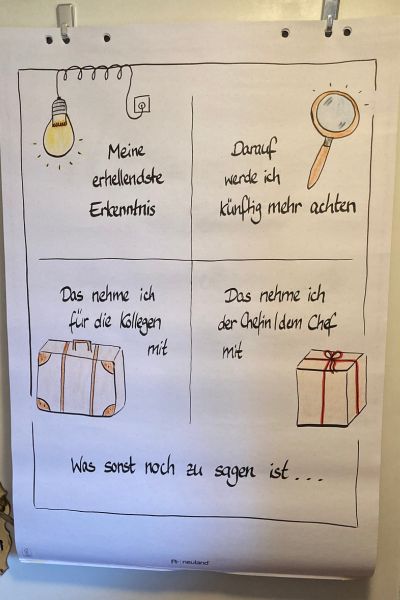 Meine
erhellendste
Erkenntnis
Darauf
werde ich
künftig mehr achten
Das nehme ich
für die Kollegen
mit
Das nehme ich
der Chefin/dem Chef
mit
Was sonst noch zu sagen ist....
neuland